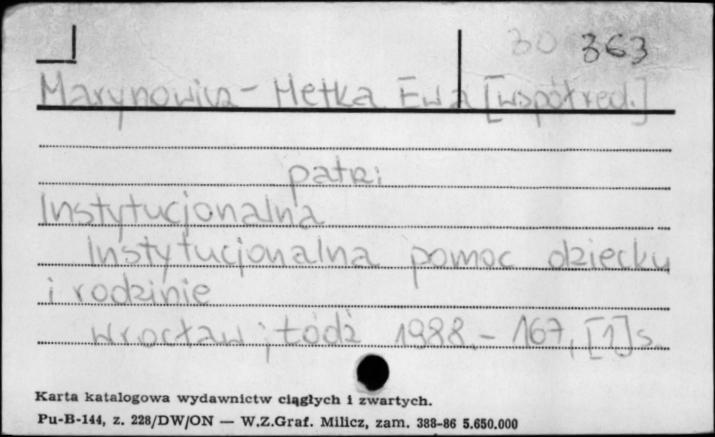 30 363
Marynowicz-Hetka Ewa [współred.]
patrz:
Instytucjonalna
Instytucjonalna pomoc dziecku
i rodzinie
Wrocław ; Łódź 1988.- 167, [1] s.
Karta katalogowa wydawnictw ciągłych i zwartych.
Pu-B-144, z. 228/DW/ON — W.Z.Graf. Milicz, zam. 388-86 5.650.000